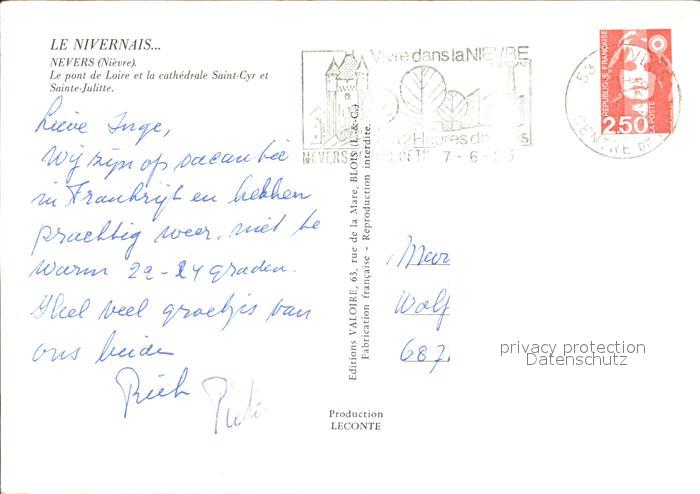 LE NIVERNAIS...
NEVERS (Nièvre).
Le pont de Loire et la cathédrale Saint-Cyr et
Sainte-Julitte.
Lieve Inge,
Wij zijn op vacantie
in Frankrijk en hebben
prachtig weer. niet te
warm 22-24 graden.
Heel veel groetjes van
ons beiden
Vivre dans la NIEVRE
NEVERS
7-6-
REPUBLIQUE FRANÇAISE
2,50
LA POSTE
58
CENTRE DE
Editions VALOIRE, 63, rue de la Mare, BLOIS (L.-&-C.)
Fabrication française - Reproduction interdite.
Wolf
687
privacy protection
Datenschutz
Production
LECONTE